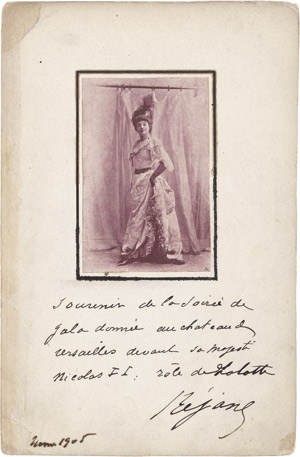 Souvenir de la Soirée de
gala donnée au chateau de
Versailles devant sa Majesté
Nicolas II : rôle de Lolotte
Réjane
1905